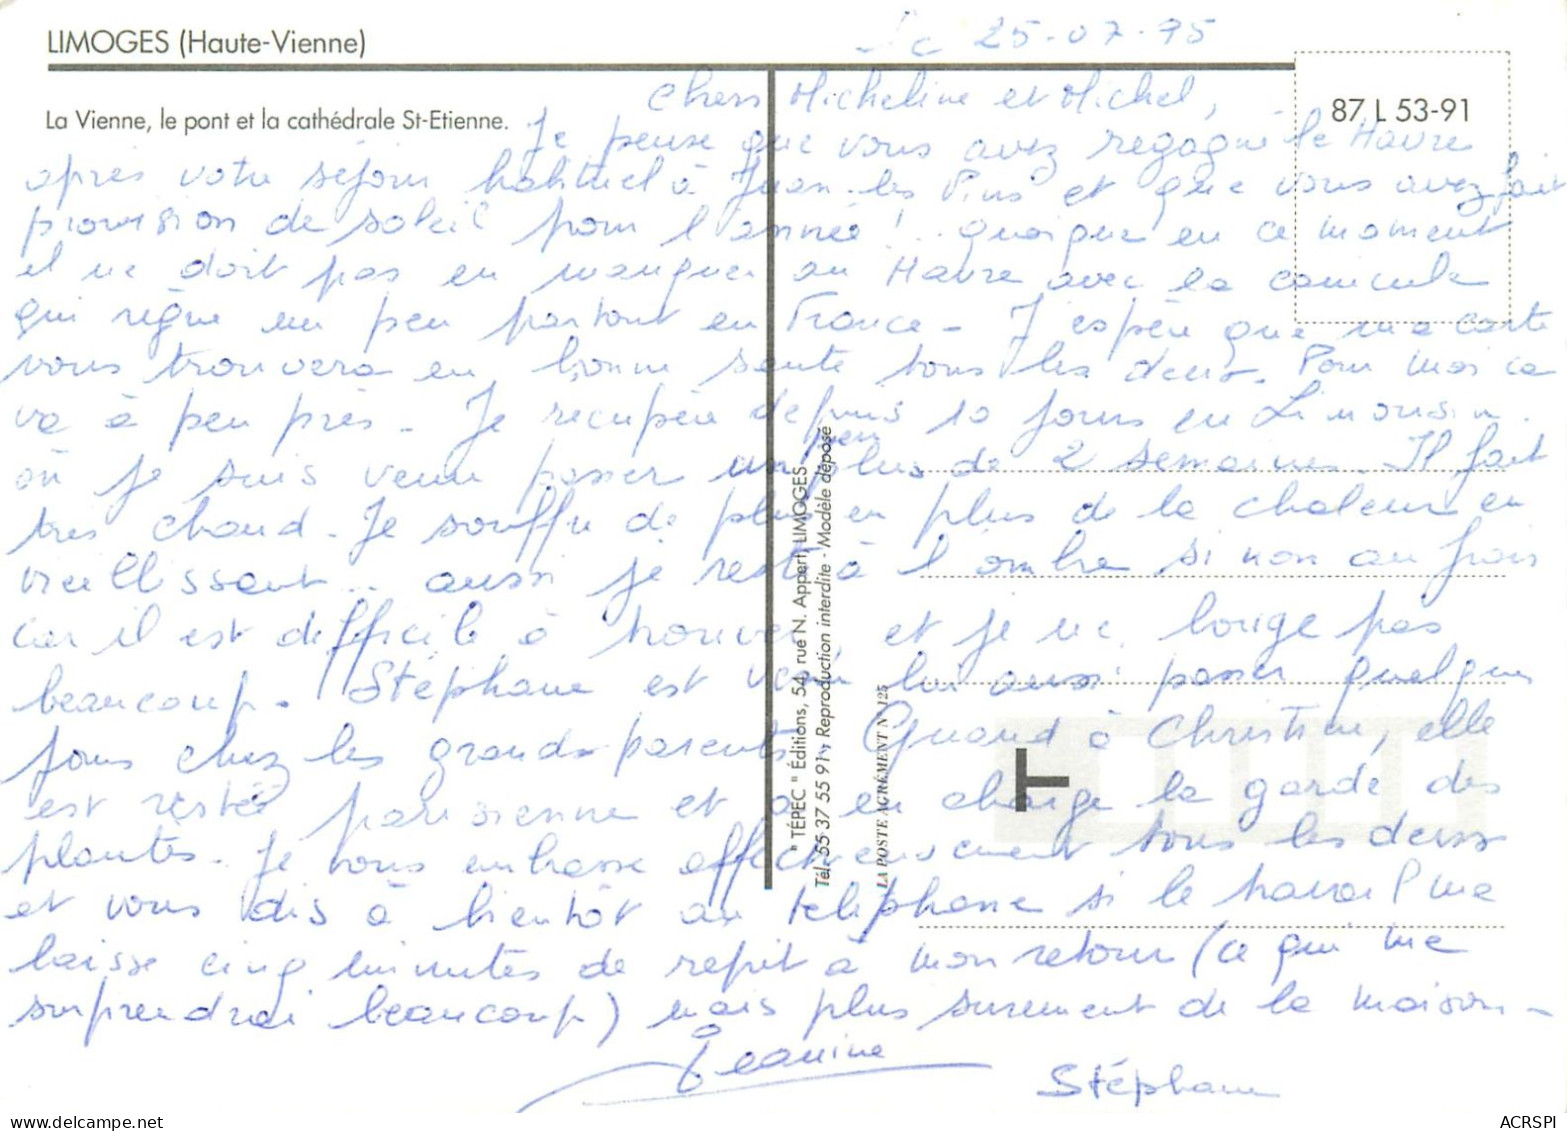 LIMOGES (Haute-Vienne)
Le 25-07-95
La Vienne, le pont et la cathédrale St-Etienne.
87 L 53-91
Chers Micheline et Michel,
Je pense que vous avez regagné le Havre
après votre séjour habituel à Juan-les Pins et que vous avez fait
provision de soleil pour l'année !.. quoique en ce moment
il ne doit pas en manquer au Havre avec la canicule
qui règne un peu partout en France - J'espère que ma carte
vous trouvera en bonne santé tous les deux. Pour moi ça
va à peu près - Je récupère depuis 10 jours en Limousin
où je suis venue passer un peu plus de 2 semaines. Il fait
très chaud. Je souffre de plus en plus de la chaleur en
vieillissant.. aussi je reste à l'ombre, sinon au frais
car il est difficile à trouver, et je ne bouge pas
beaucoup. Stéphane est venu lui aussi passer quelques
jours chez les grands-parents. Quand à Christine, elle
est restée parisienne et a en charge la garde des
plantes. Je vous embrasse affectueusement tous les deux
et vous dis à bientôt au téléphone si le travail me
laisse cinq minutes de répit à mon retour (ce qui me
surprendrai beaucoup) mais plus surement de la maison -
Jeanine
Stéphane
" TÉPEC " Éditions, 54, rue N. Appert, LIMOGES
Tél. 55 37 55 91 - Reproduction interdite - Modèle déposé
LA POSTE AGRÉMENT N° 125
T
delcampe.net
ACRSPI